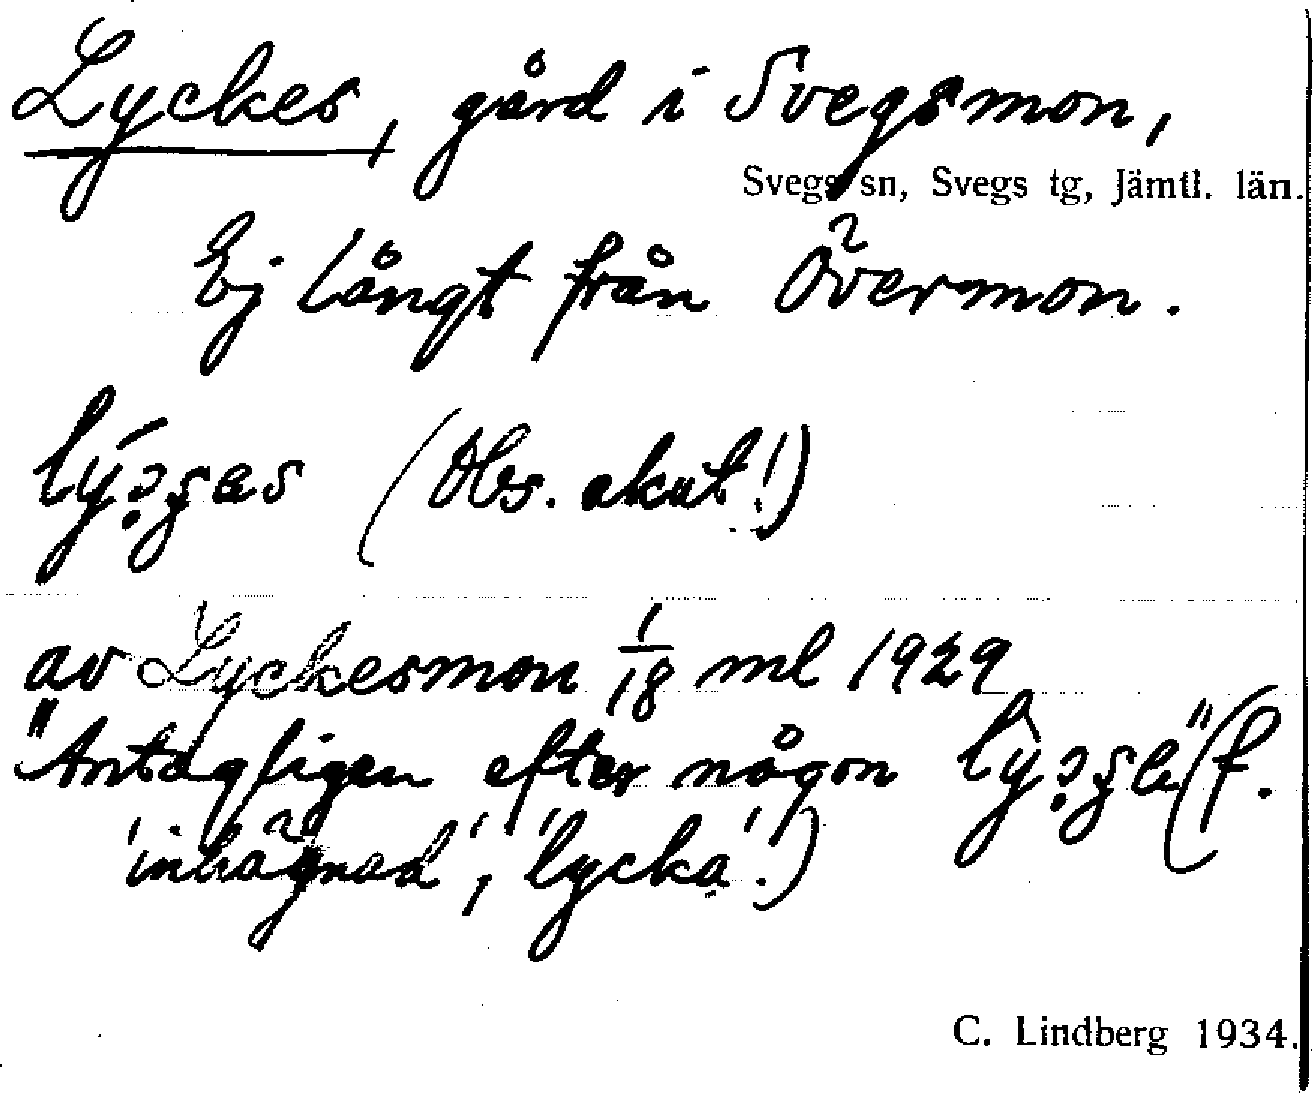 Lyckes, gård i Svegsmon,
Svegs sn, Svegs tg, Jämtl. län.
Ej långt från Övermon.
(Obs. akut!)
av Lyckesmon 1/18 mtl 1929
"Antagligen efter någon (f.
'inhägnad', 'lycka'.)
C. Lindberg 1934.